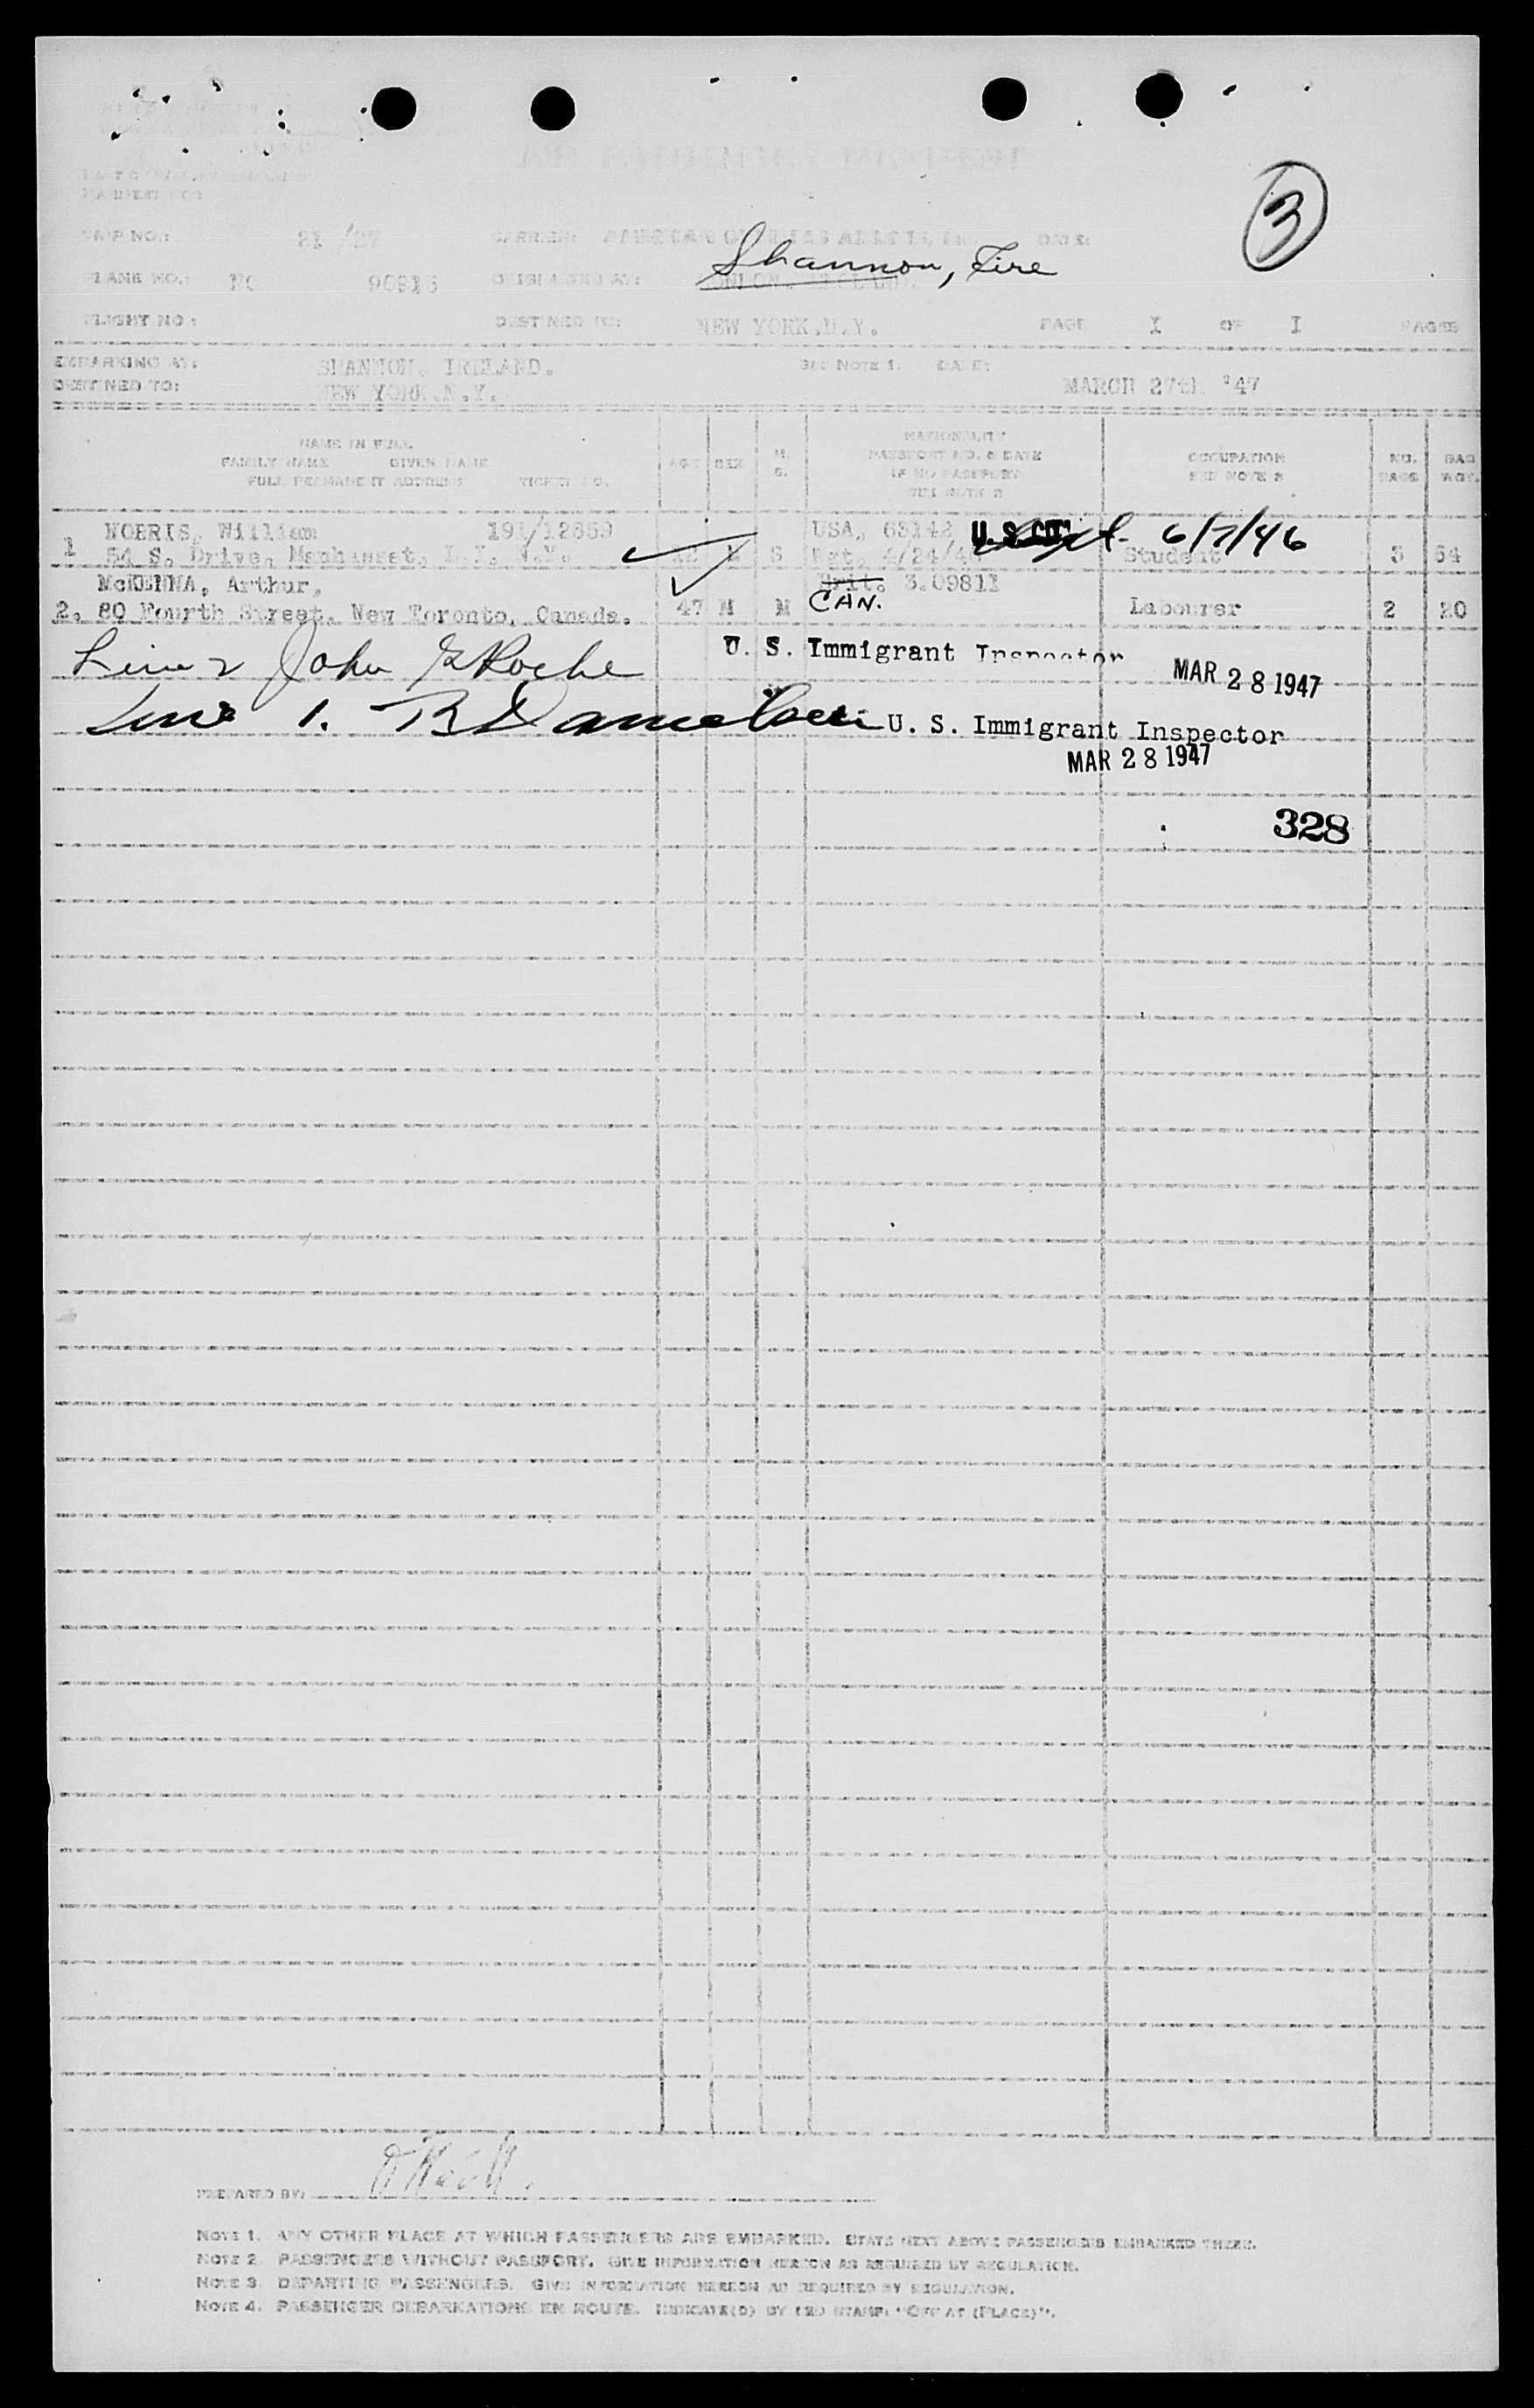 AIR PASSENGER MANIFEST
3
TRIP NO.: 21 /27 CARRIER: AMERICAN OVERSEAS AIRLINES, Inc. DATE:
Shannon, Eire
PLANE NO.: NC 90915 ORIGINATED AT: LONDON, ENGLAND.
FLIGHT NO: DESTINED TO: NEW YORK.N.Y. PAGE I OF I PAGES
EMBARKING AT: SHANNON, IRELAND. SEE NOTE 1. DATE:
DESTINED TO: NEW YORK.N.Y. MARCH 27th '47
NAME IN FULL
FAMILY NAME GIVEN NAME
FULL PERMANENT ADDRESS TICKET NO.
AGE SEX M. S.
NATIONALITY
PASSPORT NO. & DATE
IF NO PASSPORT
SEE NOTE 2
OCCUPATION
SEE NOTE 3
NO. BAGS BAG WGT.
NORRIS, William 191/12659 USA, 63142 U.S. CIT. 6/7/46
1 54 S. Drive, Manhasset, L.I. N.Y. S 4/24/4 Student 3 54
McKENNA, Arthur, Brit. 3.09811
2. 80 Fourth Street, New Toronto, Canada. 47 M M CAN. Labourer 2 20
Line 2 John Roche U. S. Immigrant Inspector MAR 28 1947
Line 1. U. S. Immigrant Inspector
MAR 28 1947
328
PREPARED BY:
NOTE 1. ANY OTHER PLACE AT WHICH PASSENGERS ARE EMBARKED. STATE NEXT ABOVE PASSENGERS EMBARKED THERE.
NOTE 2. PASSENGERS WITHOUT PASSPORT. GIVE INFORMATION HEREON AS REQUIRED BY REGULATION.
NOTE 3. DEPARTING PASSENGERS. GIVE INFORMATION HEREON AS REQUIRED BY REGULATION.
NOTE 4. PASSENGER DEBARKATIONS EN ROUTE. INDICATE(D) BY RED STAMP: "OFF AT (PLACE)".